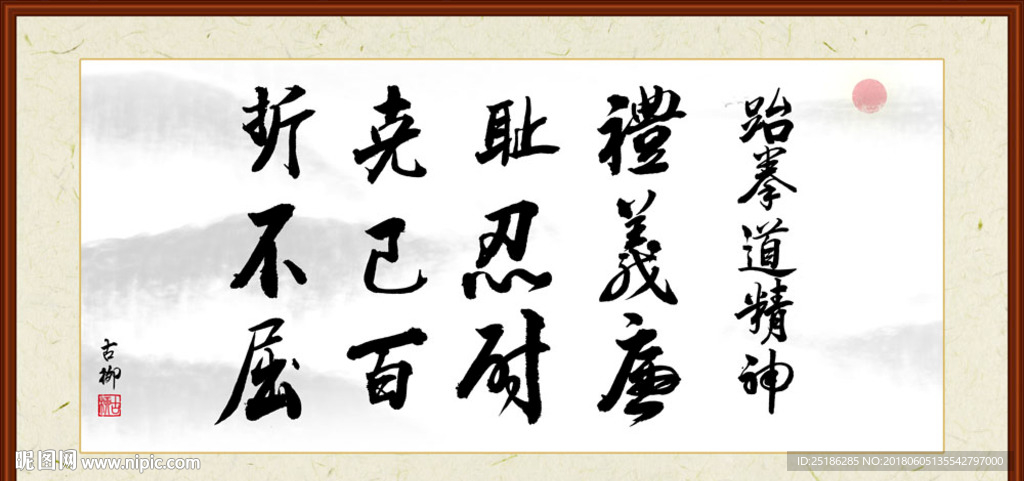 跆拳道精神
禮義廉
耻忍耐
尧己百
折不屈
古柳
昵图网 www.nipic.com
ID:25186285 NO:20180605135542797000